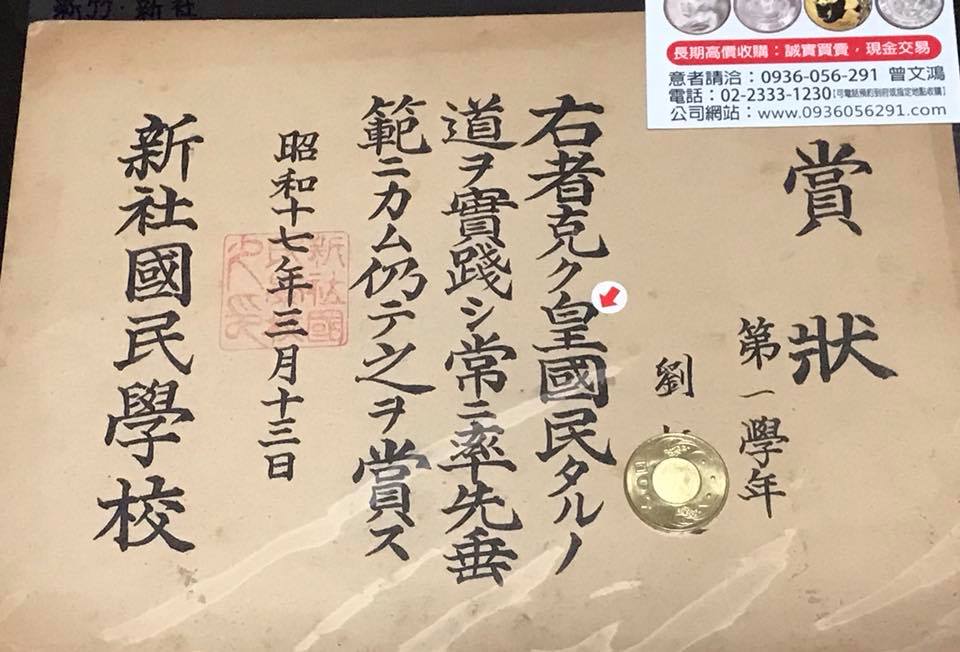 新竹·新社
長期高價收購：誠實買賣，現金交易
意者請洽：0936-056-291 曾文鴻
電話：02-2333-1230【可電話預約到府或指定地點收購】
公司網站：www.0936056291.com
賞狀
第一學年
劉
右者克ク皇國民タルノ
道ヲ實踐シ常ニ率先垂
範ニカム仍テ之ヲ賞ス
昭和十七年三月十三日
新社國民學校
新社國